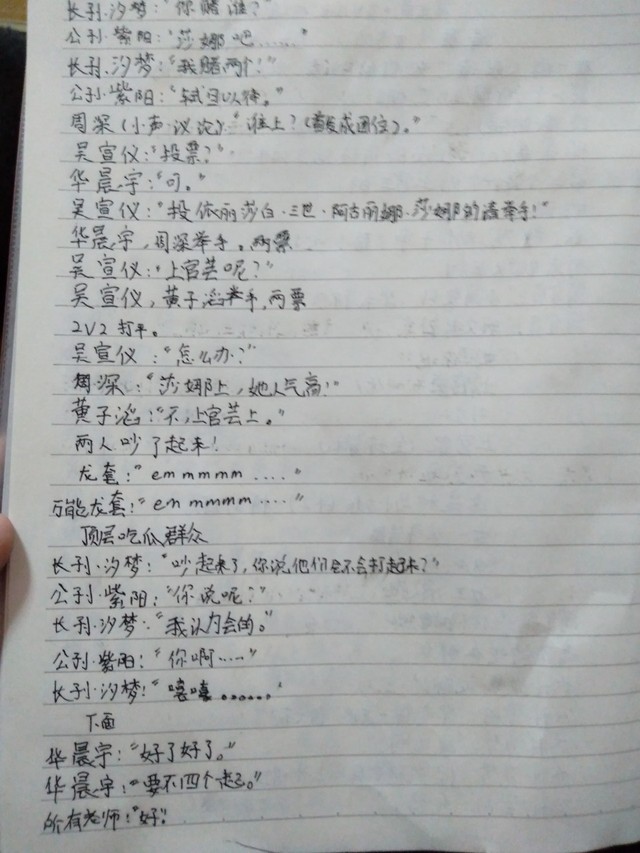 长孙·汐梦：“你赌谁？”
公孙·紫阳：“莎娜吧……”
长孙·汐梦：“我赌两个！”
公孙·紫阳：“拭目以待。”
周深（小声议论）“谁上？（最成团位）。”
吴宣仪：“投票？”
华晨宇：“可。”
吴宣仪：“投依丽莎白·三世·阿古丽娜·莎娜的请举手！”
华晨宇，周深举手。两票
吴宣仪：“上官芸呢？”
吴宣仪，黄子滔举手，两票
2V2 打平。
吴宣仪：“怎么办？”
周深：“莎娜上，她人气高！”
黄子滔：“不，上官芸上。”
两人吵了起来！
龙套：“emmmmm……”
万能龙套：“emmmmm……”
顶层吃瓜群众
长孙·汐梦：“吵起来了，你说他们会不会打起来？”
公孙·紫阳：“你说呢？”
长孙·汐梦：“我认为会的。”
公孙·紫阳：“你啊……”
长孙·汐梦：“嘻嘻……”
下面
华晨宇：“好了好了。”
华晨宇：“要不四个一起。”
所有老师：“好！